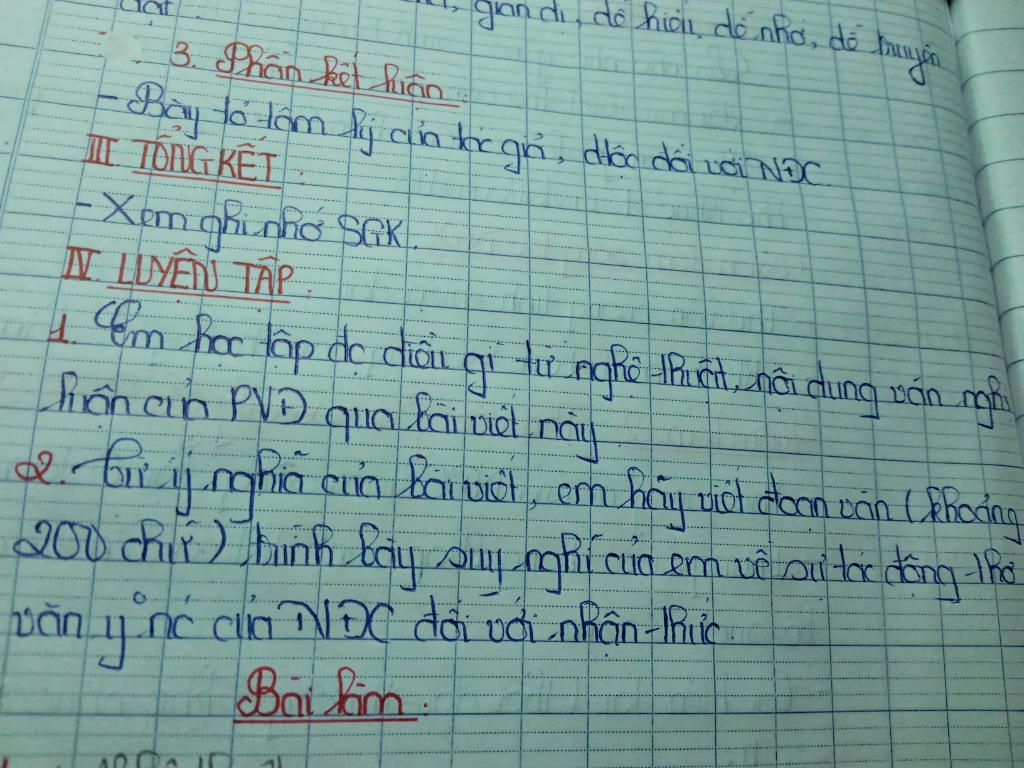 giản dị, dễ hiểu, dễ nhớ, dễ truyền
3. Phần kết luận.
- Bày tỏ tâm lý của tác giả, đlộc đối với NĐC.
III TỔNG KẾT.
- Xem ghi nhớ SGK.
IV LUYỆN TẬP.
1. Em học tập đc điều gì từ nghệ thuật, nội dung văn nghị
luận của PVĐ qua bài viết này
2. Từ ý nghĩa của bài viết, em hãy viết đoạn văn (khoảng
200 chữ) trình bày suy nghĩ của em về sự tác động thơ
văn y nc của NĐC đối với nhận thức.
Bài làm.